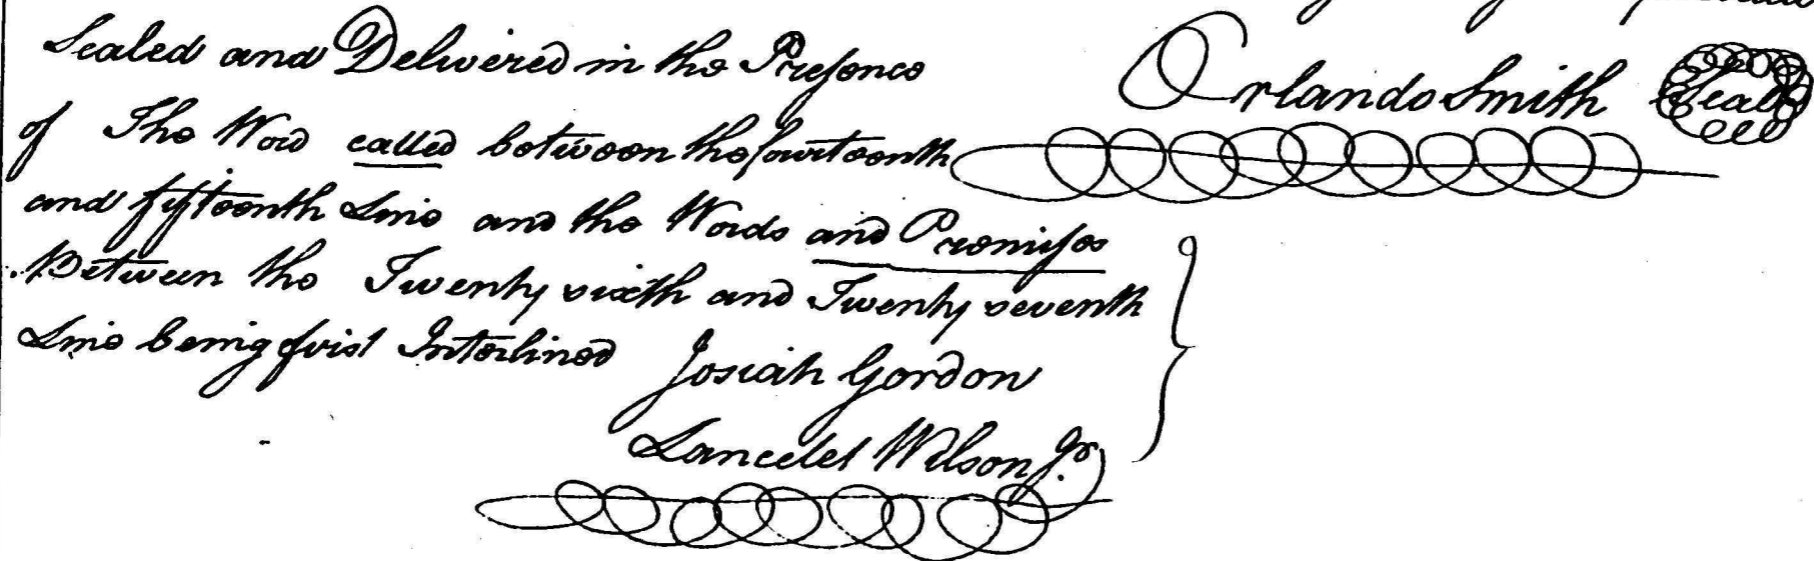 Sealed and Delivered in the Presence
of The Word called between the fourteenth
and fifteenth Line and the Words and Premises
Between the Twenty sixth and Twenty seventh
Line being first Interlined
Josiah Gordon
Lancelet Wilson Jr.
Orlando Smith Seal